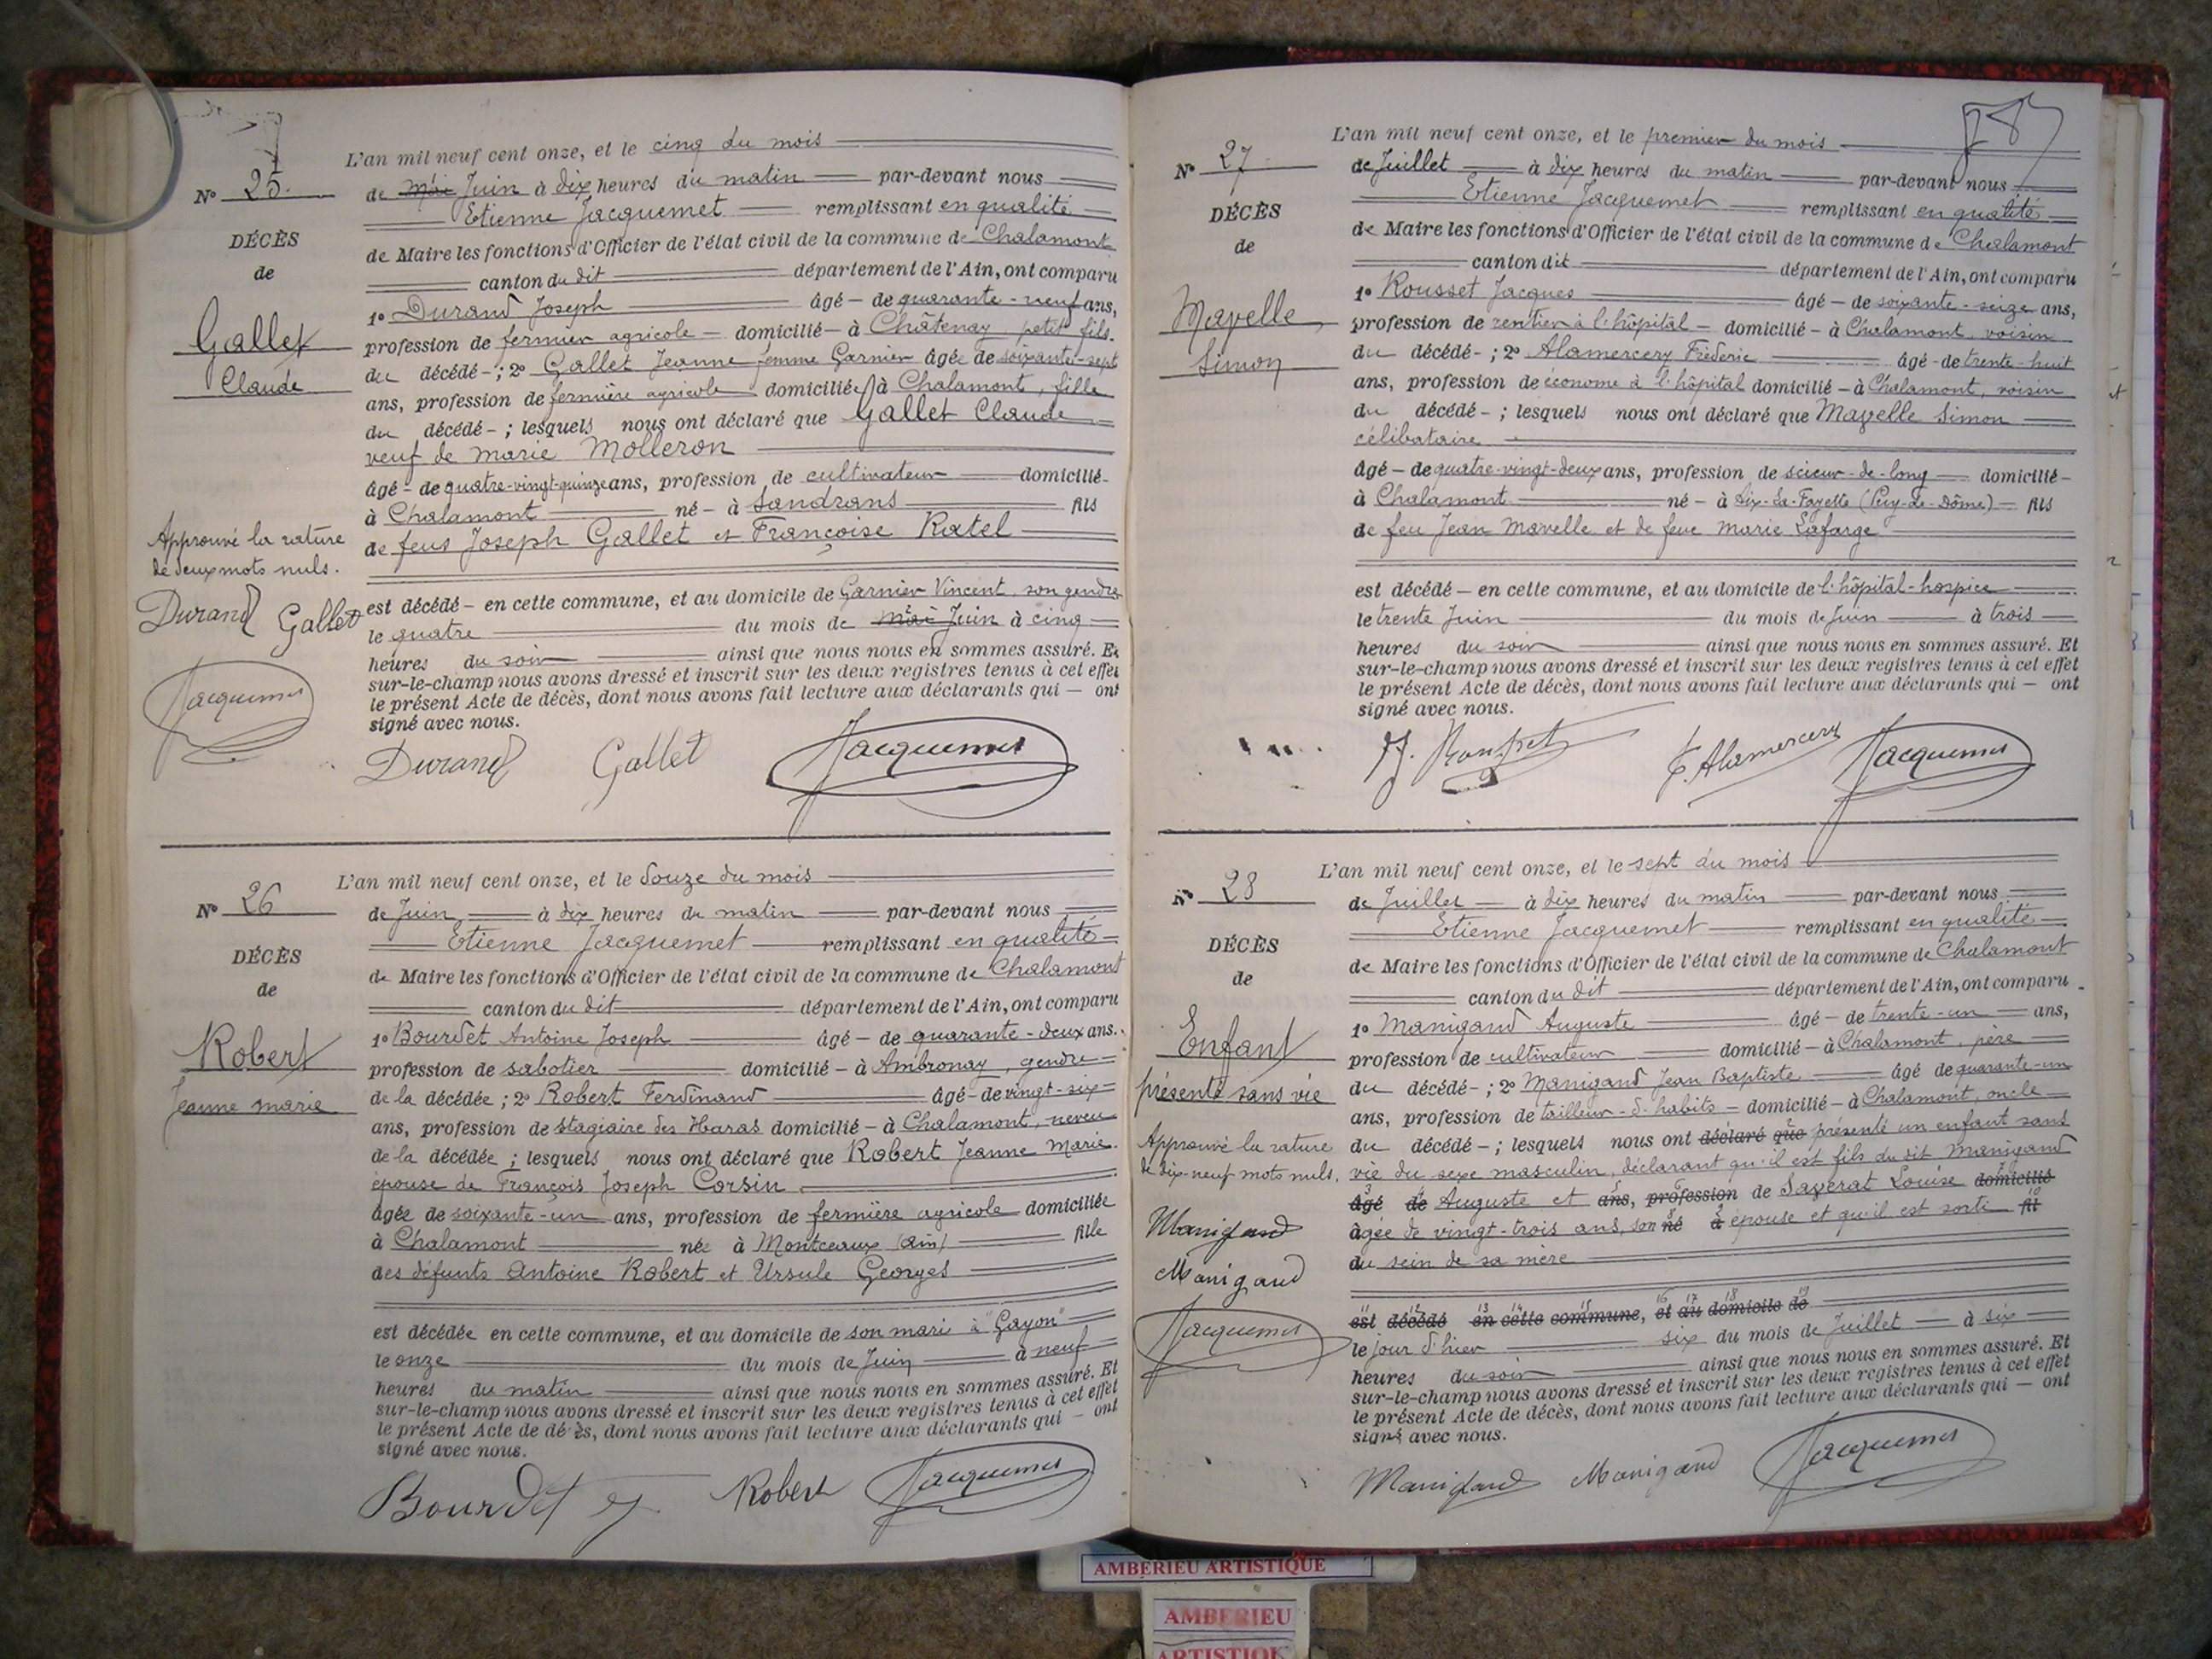 L'an mil neuf cent onze, et le cinq du mois
Nº 25.
de Mai Juin à dix heures du matin par-devant nous
Etienne Jacquemet remplissant en qualité
DÉCÈS
de Maire les fonctions d'Officier de l'état civil de la commune de Chalamont
de
canton du dit département de l'Ain, ont comparu
1º Durand Joseph âgé de quarante-neuf ans,
Gallet
profession de fermier agricole domicilié à Châtenay petit-fils
Claude
du décédé ; 2º Gallet Jeanne femme Garnier âgée de soixante-sept
ans, profession de fermière agricole domiciliée à Chalamont, fille
du décédé ; lesquels nous ont déclaré que Gallet Claude
veuf de marie Molleron
âgé de quatre-vingt-quinze ans, profession de cultivateur domicilié
à Chalamont né à Sandrans fils
de feus Joseph Gallet et Françoise Ratel
Approuvé la rature
de deux mots nuls.
Durand Gallet
Jacquemet
est décédé en cette commune, et au domicile de Garnier Vincent, son gendre
le quatre du mois de Mai Juin à cinq
heures du soir ainsi que nous nous en sommes assuré. Et
sur-le-champ nous avons dressé et inscrit sur les deux registres tenus à cet effet
le présent Acte de décès, dont nous avons fait lecture aux déclarants qui — ont
signé avec nous.
Durand Gallet Jacquemet
L'an mil neuf cent onze, et le douze du mois
Nº 26
de Juin à dix heures du matin par-devant nous
Etienne Jacquemet remplissant en qualité
DÉCÈS
de Maire les fonctions d'Officier de l'état civil de la commune de Chalamont
de
canton du dit département de l'Ain, ont comparu
1º Bourdet Antoine Joseph âgé de quarante-deux ans.
Robert
profession de sabotier domicilié à Ambronay, gendre
Jeanne marie
de la décédée ; 2º Robert Ferdinand âgé de vingt-six
ans, profession de stagiaire des Haras domicilié à Chalamont, neveu
de la décédée ; lesquels nous ont déclaré que Robert Jeanne Marie.
épouse de François Joseph Corsin
âgée de soixante-un ans, profession de fermière agricole domiciliée
à Chalamont née à Montceaux (Ain) fille
des défunts Antoine Robert et Ursule Georges
est décédée en cette commune, et au domicile de son mari à "Gayon"
le onze du mois de Juin à neuf
heures du matin ainsi que nous nous en sommes assuré. Et
sur-le-champ nous avons dressé et inscrit sur les deux registres tenus à cet effet
le présent Acte de décès, dont nous avons fait lecture aux déclarants qui — ont
signé avec nous.
Bourdet Robert Jacquemet
L'an mil neuf cent onze, et le premier du mois
Nº 27
de Juillet à dix heures du matin par-devant nous
Etienne Jacquemet remplissant en qualité
DÉCÈS
de Maire les fonctions d'Officier de l'état civil de la commune de Chalamont
de
canton dit département de l'Ain, ont comparu
1º Rousset Jacques âgé de soixante-seize ans,
Mavelle
profession de rentier à l'hôpital domicilié à Chalamont, voisin
Simon
du décédé ; 2º Alamercery Fréderic âgé de trente-huit
ans, profession de économe à l'hôpital domicilié à Chalamont, voisin
du décédé ; lesquels nous ont déclaré que Mavelle Simon
célibataire
âgé de quatre-vingt-deux ans, profession de scieur-de-long domicilié
à Chalamont né à Aix-La-Fayette (Puy-de-Dôme) fils
de feu Jean Mavelle et de feue Marie Lafarge
est décédé en cette commune, et au domicile de l'hôpital-hospice
le trente Juin du mois de Juin à trois
heures du soir ainsi que nous nous en sommes assuré. Et
sur-le-champ nous avons dressé et inscrit sur les deux registres tenus à cet effet
le présent Acte de décès, dont nous avons fait lecture aux déclarants qui — ont
signé avec nous.
J. Rousset F. Alamercery Jacquemet
L'an mil neuf cent onze, et le sept du mois
Nº 28
de Juillet à dix heures du matin par-devant nous
Etienne Jacquemet remplissant en qualité
DÉCÈS
de Maire les fonctions d'Officier de l'état civil de la commune de Chalamont
de
canton du dit département de l'Ain, ont comparu
1º Manigand Auguste âgé de trente-un ans,
Enfant
profession de cultivateur domicilié à Chalamont, père
présenté sans vie
du décédé ; 2º Manigand Jean Baptiste âgé de quarante-un
ans, profession de tailleur-d'habits domicilié à Chalamont, oncle
Approuvé la rature
de dix-neuf mots nuls.
du décédé ; lesquels nous ont déclaré que présenté un enfant sans
vie du sexe masculin, déclarant qu'il est fils du dit Manigand
âgé de Auguste et ans, profession de Savérat Louise domicilié
âgée de vingt-trois ans, son né à épouse et qu'il est sorti fil
du sein de sa mère
Manigand
Manigand
Jacquemet
est décédé en cette commune, et au domicile de
le jour d'hier six du mois de Juillet à six
heures du soir ainsi que nous nous en sommes assuré. Et
sur-le-champ nous avons dressé et inscrit sur les deux registres tenus à cet effet
le présent Acte de décès, dont nous avons fait lecture aux déclarants qui — ont
signé avec nous.
Manigand Manigand Jacquemet
AMBERIEU ARTISTIQUE
AMBERIEU